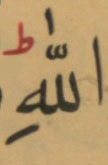 اللّٰهِ ط